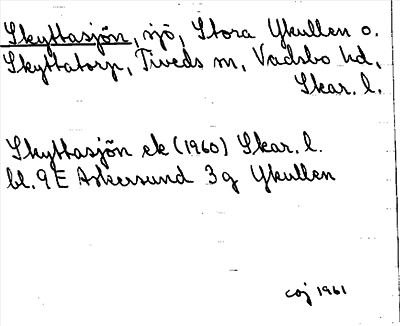 Skyttasjön, sjö, Stora Ykullen o.
Skyttatorp, Tiveds sn, Vadsbo hd,
Skar. l.
Skyttasjön ek (1960) Skar. l.
bl. 9E Askersund 3g Ykullen
coj 1961